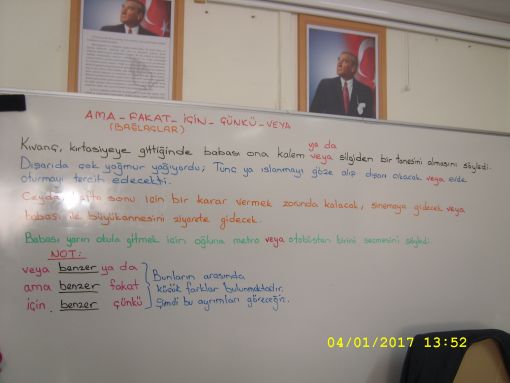 AMA - FAKAT - İÇİN - ÇÜNKÜ - VEYA
(BAĞLAÇLAR)
ya da
Kıvanç, kırtasiyeye gittiğinde babası ona kalem veya silgiden bir tanesini almasını söyledi.
Dışarıda çok yağmur yağıyordu; Tunç ya ıslanmayı göze alıp dışarı çıkacak veya evde
oturmayı tercih edecekti.
Ceyda, hafta sonu için bir karar vermek zorunda kalacak, sinemaya gidecek veya
babası ile büyükannesini ziyarete gidecek.
Babası yarın okula gitmek için oğluna metro veya otobüsten birini seçmesini söyledi.
NOT:
veya benzer ya da
ama benzer fakat
için benzer çünkü
Bunların arasında
küçük farklar bulunmaktadır.
Şimdi bu ayrımları göreceğiz.
04/01/2017 13:52